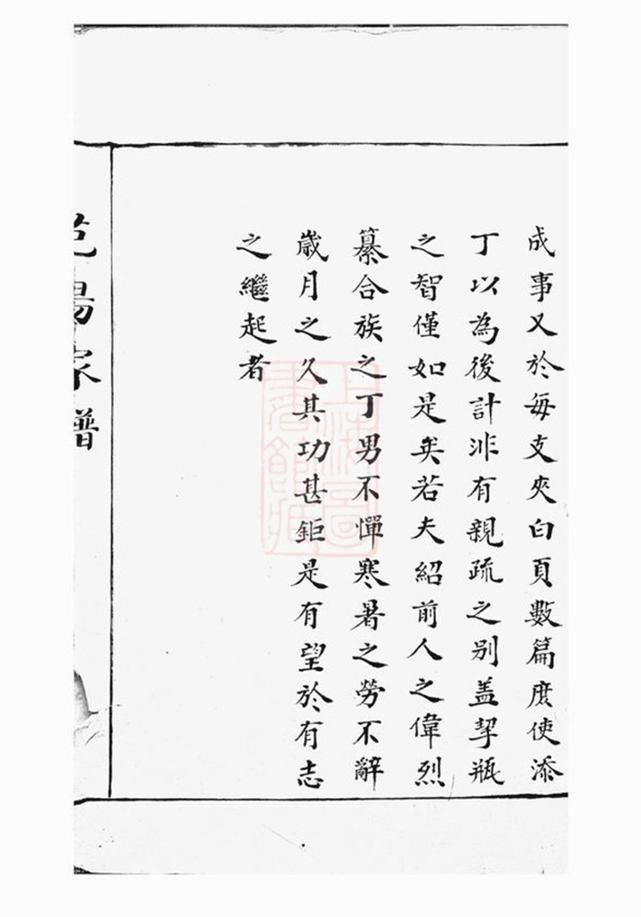 成事又於每支夾白頁數篇庶使添
丁以為後計非有親疏之别盖挈瓶
之智僅如是矣若夫紹前人之偉烈
纂合族之丁男不憚寒暑之勞不辭
歲月之久其功甚鉅是有望於有志
之繼起者
上海圖書館藏
家譜